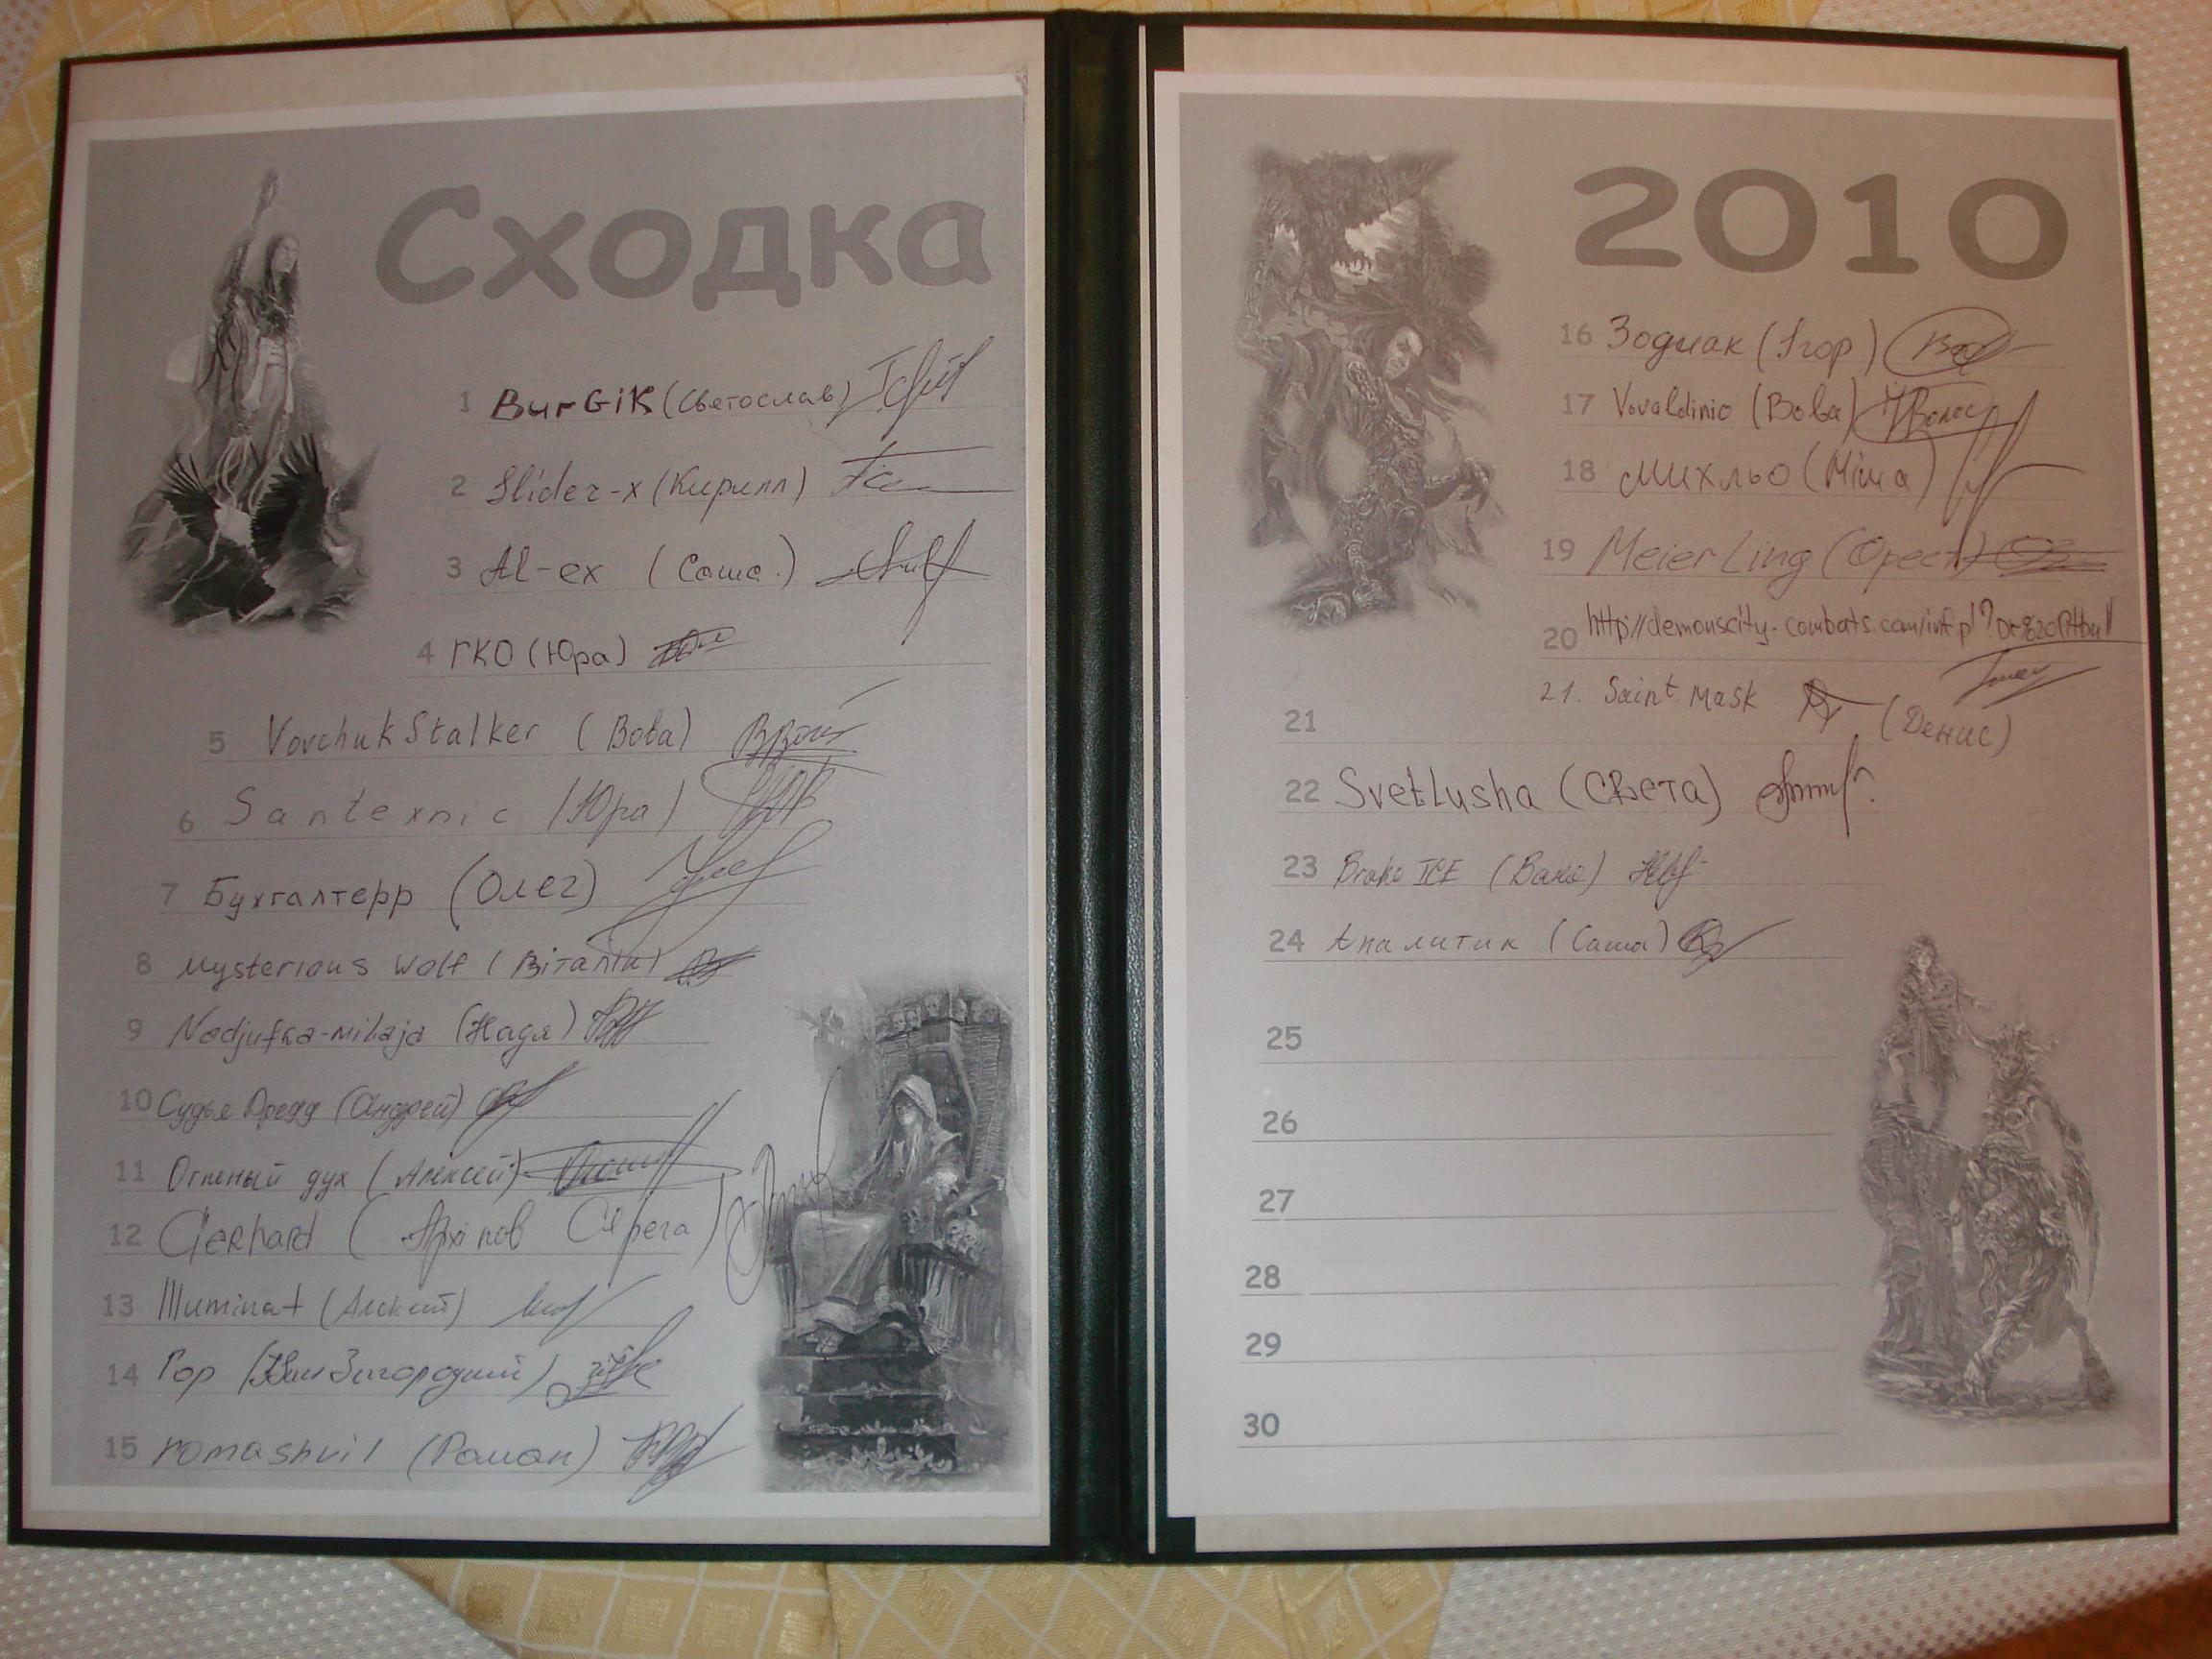 Сходка
1 BurGiK (Светослав)
2 Slider-x (Кирилл)
3 Al-ex (Саша.)
4 ГКО (Юра)
5 Vovchuk Stalker (Вова)
6 Santexnic (Юра)
7 Бухгалтерр (Олег)
8 Mysterious Wolf (Віталік)
9 Nadjufka-milaja (Надя)
10 Судья Дредд (Андрей)
11 Огненый дух (Алексей)
12 Gerhard (Архіпов Сєрега)
13 Illuminat (Алексей)
14 Гор
15 romashvil (Роман)
2010
16 Зодиак (Ігор)
17 Vovaldinio (Вова)
18 Михльо (Міша)
19 Meier Ling (Орест)
20 http://demonscity.combats.com/inf.pl?
21. Saint Mask (Денис)
21
22 SvetLusha (Света)
23 ICE (Ваня)
24 Аналитик (Саша)
25
26
27
28
29
30